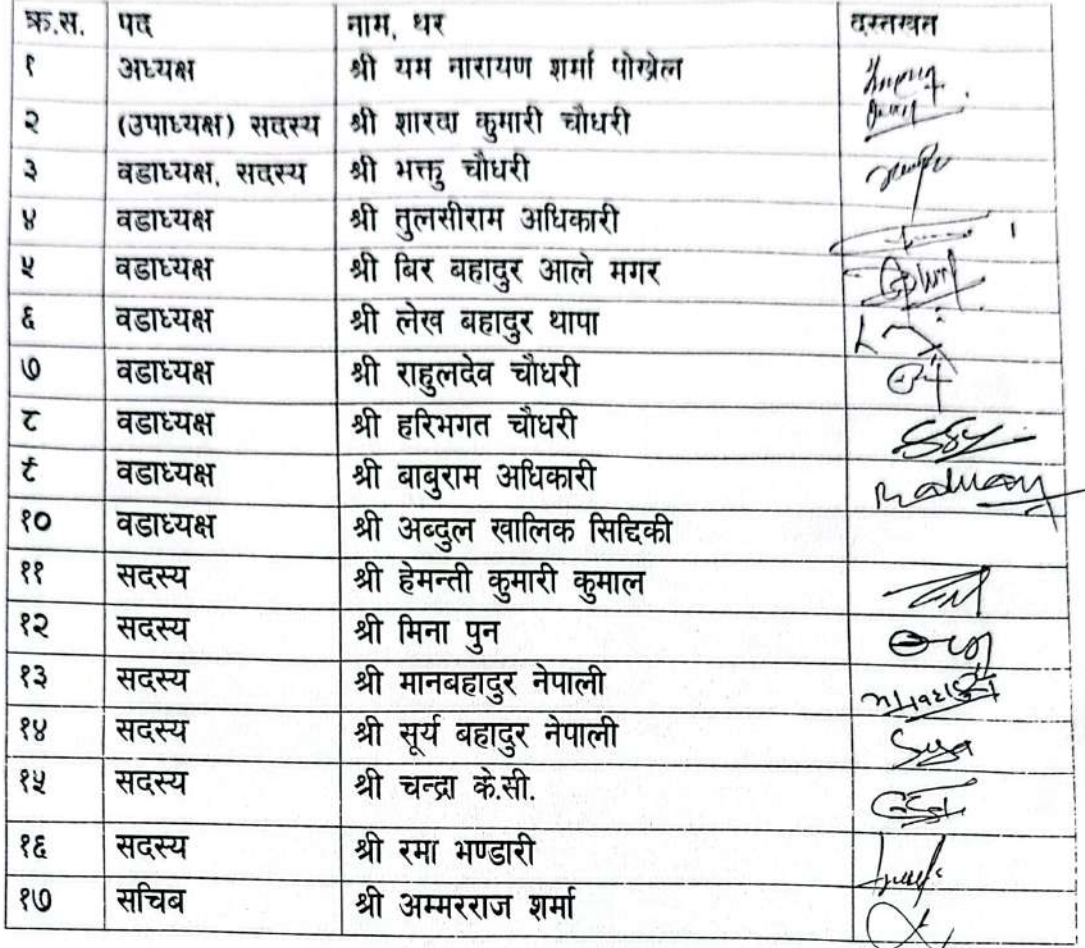 क्र.स. पद नाम, थर दस्तखत
१ अध्यक्ष श्री यम नारायण शर्मा पोख्रेल
२ (उपाध्यक्ष) सदस्य श्री शारदा कुमारी चौधरी
३ वडाध्यक्ष, सदस्य श्री भक्तु चौधरी
४ वडाध्यक्ष श्री तुलसीराम अधिकारी
५ वडाध्यक्ष श्री बिर बहादुर आले मगर
६ वडाध्यक्ष श्री लेख बहादुर थापा
७ वडाध्यक्ष श्री राहुलदेव चौधरी
८ वडाध्यक्ष श्री हरिभगत चौधरी
९ वडाध्यक्ष श्री बाबुराम अधिकारी
१० वडाध्यक्ष श्री अब्दुल खालिक सिद्दिकी
११ सदस्य श्री हेमन्ती कुमारी कुमाल
१२ सदस्य श्री मिना पुन
१३ सदस्य श्री मानबहादुर नेपाली
१४ सदस्य श्री सूर्य बहादुर नेपाली
१५ सदस्य श्री चन्द्रा के.सी.
१६ सदस्य श्री रमा भण्डारी
१७ सचिब श्री अम्मरराज शर्मा